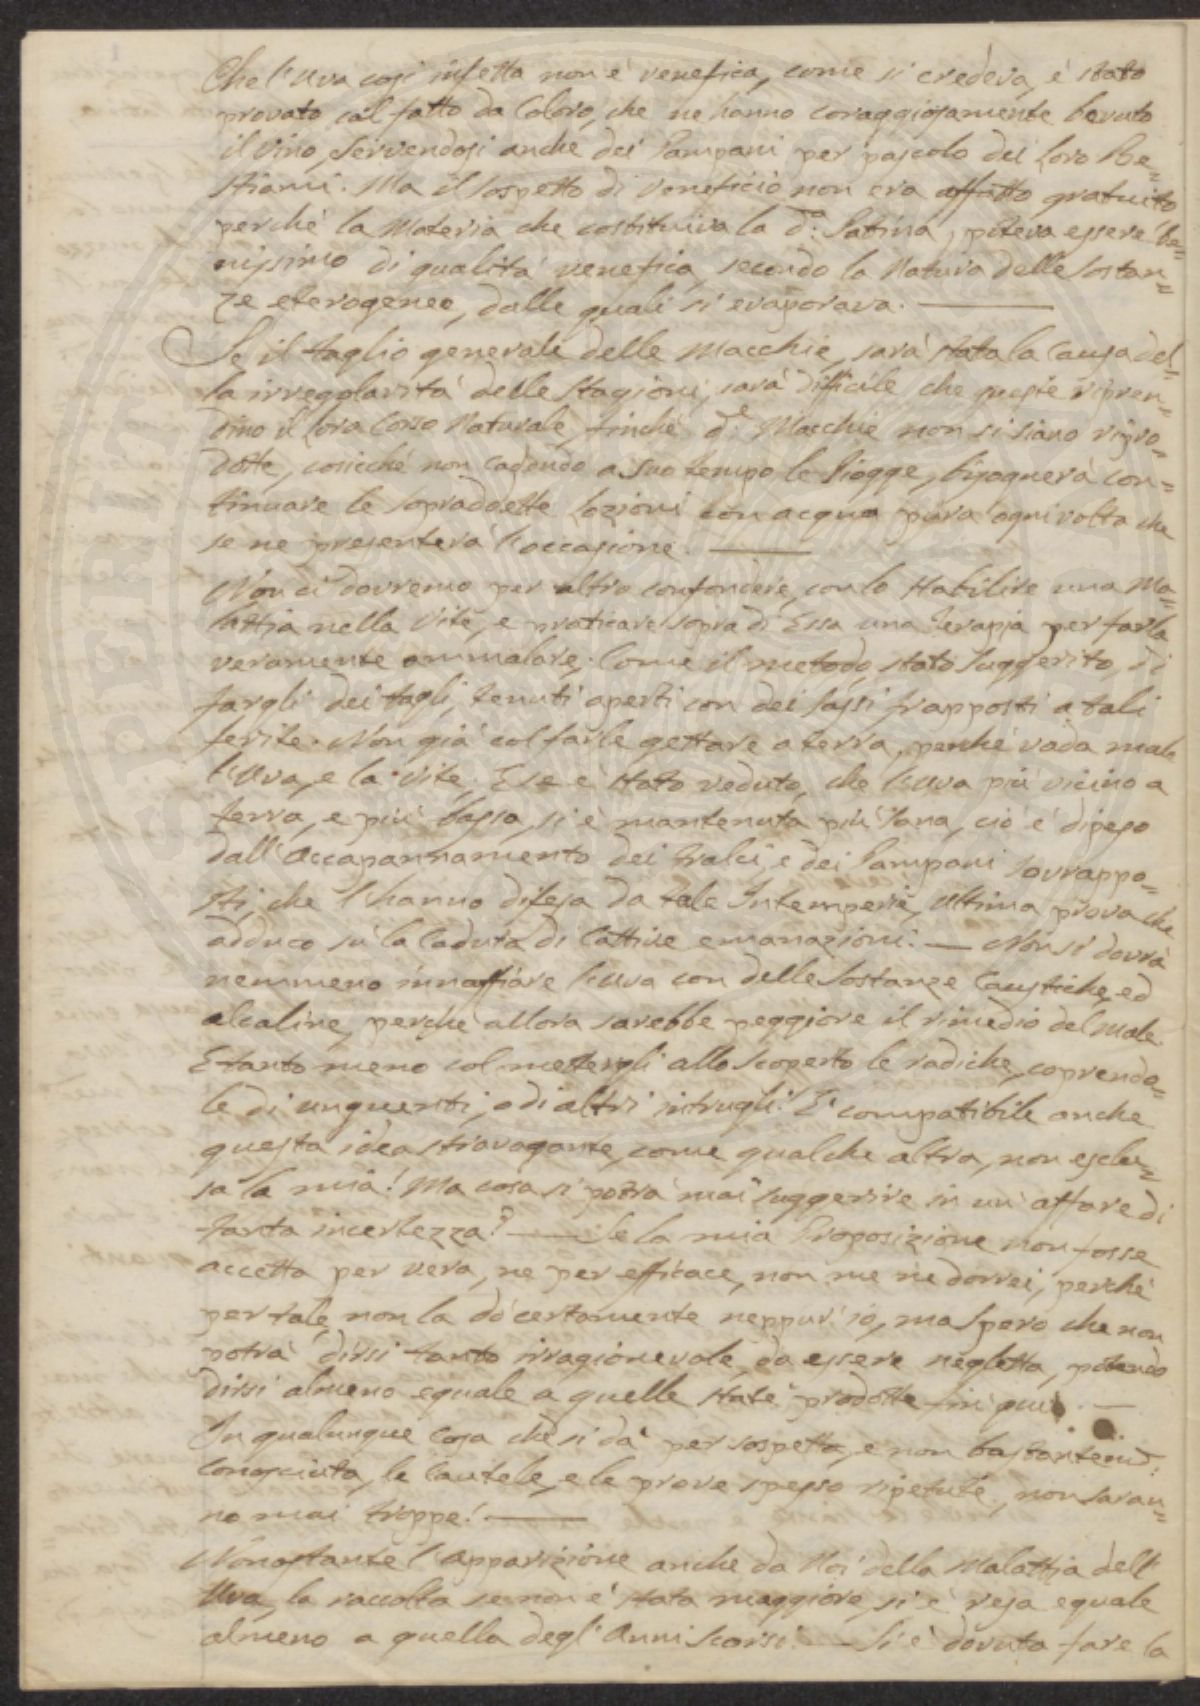 Che l'Uva così infetta non è venefica, come si credeva, è stato
provato col fatto da Coloro, che ne hanno coraggiosamente bevuto
il Vino, servendosi anche dei Pampani per pascolo dei loro Be=
stiami. Ma il sospetto di veneficio non era affatto gratuito
perchè la Materia che costituiva la d.a Patina, poteva essere be=
nissimo di qualità venefica, secondo la Natura delle sostan=
ze eterogenee, dalle quali si evaporava. ———
Se il taglio generale delle Macchie, sarà stata la Causa del=
la irregolarità delle Stagioni, sarà difficile che queste ripren=
dino il loro Corso Naturale, finchè d.e Macchie non si siano ripro=
dotte, cosicchè non cadendo a suo tempo le Piogge, bisognerà con=
tinuare le sopraddette lozioni con acqua pura ogni volta che
se ne presenterà l'occasione. ———
Non ci dovremo per altro confondere, con lo stabilire una Ma=
lattia nella Vite, e praticare sopra di Essa una Terapia per farla
veramente ammalare; Come il metodo, stato suggerito, di
fargli dei tagli, tenuti aperti con dei sassi frapposti a tali
ferite. Non già col farle gettare a terra, perchè vada male
l'Uva, e la Vite. E se è stato veduto, che l'Uva più vicino a
terra, e più bassa, si è mantenuta più sana, ciò è dipeso
dall'Accapannamento dei tralci, e dei Pampani sovrappo=
sti, che l'hanno difesa da tale Intemperie, ultima prova che
adduco sù la Caduta di Cattive emanazioni. — Non si dovrà
nemmeno innaffiare l'Uva con delle Sostanze Caustiche, ed
alcaline, perchè allora sarebbe peggiore il rimedio del Male.
E tanto meno col mettergli allo scoperto le radiche, coprendo=
le di unguenti, o di altri intrugli! E' compatibile anche
questa idea stravagante, come qualche altra, non esclu=
sa la mia! Ma cosa si potrà mai suggerire in un'affare di
tanta incertezza? — Se la mia Proposizione non fosse
accetta per vera, ne per efficace, non me ne dorrei, perchè
per tale, non la dò certamente neppur'io, ma spero che non
potrà dirsi tanto irragionevole, da essere negletta, potendo
dirsi almeno eguale a quelle state prodotte fin quì. —
In qualunque Cosa che si dà per sospetta, e non bastantem.e
conosciuta, le Cautele, e le prove spesso ripetute, non saran=
no mai troppe! ———
Nonostante l'apparizione anche da Noi della Malattia dell'
Uva, la raccolta se non è stata maggiore, si è resa eguale
almeno a quella degl'Anni scorsi. — Si è dovuta fare la